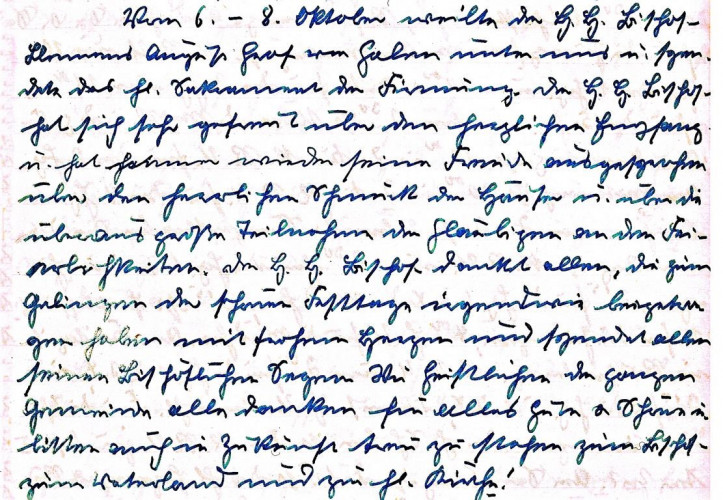 Vom 6. – 8. Oktober weilte der H. H. Bischof
Klemens August Graf von Galen unter uns u. spen-
dete das hl. Sakrament der Firmung. Der H. H. Bischof
hat sich sehr gefreut über den herzlichen Empfang
u. hat immer wieder seine Freude ausgesprochen
über den herrlichen Schmuck der Häuser u. über die
überaus große Teilnahme der Gläubigen an den Fei-
erlichkeiten. Der H. H. Bischof dankt allen, die zum
Gelingen der schönen Festtage irgendwie beigetra-
gen haben mit frohem Herzen und spendet allen
seinen Bischöflichen Segen. Wir Geistlichen der ganzen
Gemeinde alle danken für alles Gute u. Schöne u.
bitten auch in Zukunft treu zu stehen zum Bischof
zum Vaterland und zur hl. Kirche!